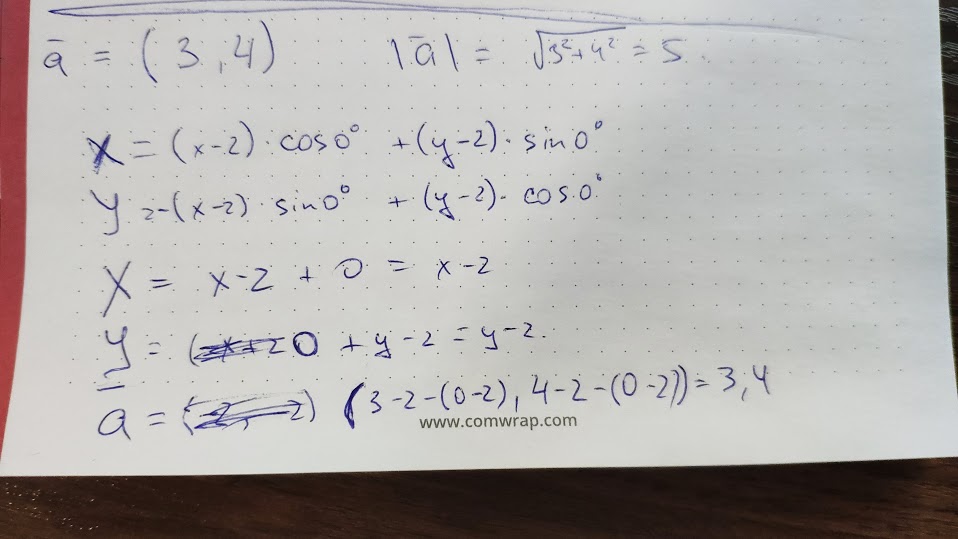 ā = (3,4) |ā| = √3²+4² = 5
X = (x-2)·cos0° +(y-2)·sin0°
y = -(x-2)·sin0° + (y-2)·cos0°
X = x-2 + 0 = x-2
y = 0 + y-2 = y-2.
a = (3-2-(0-2), 4-2-(0-2)) = 3,4
www.comwrap.com